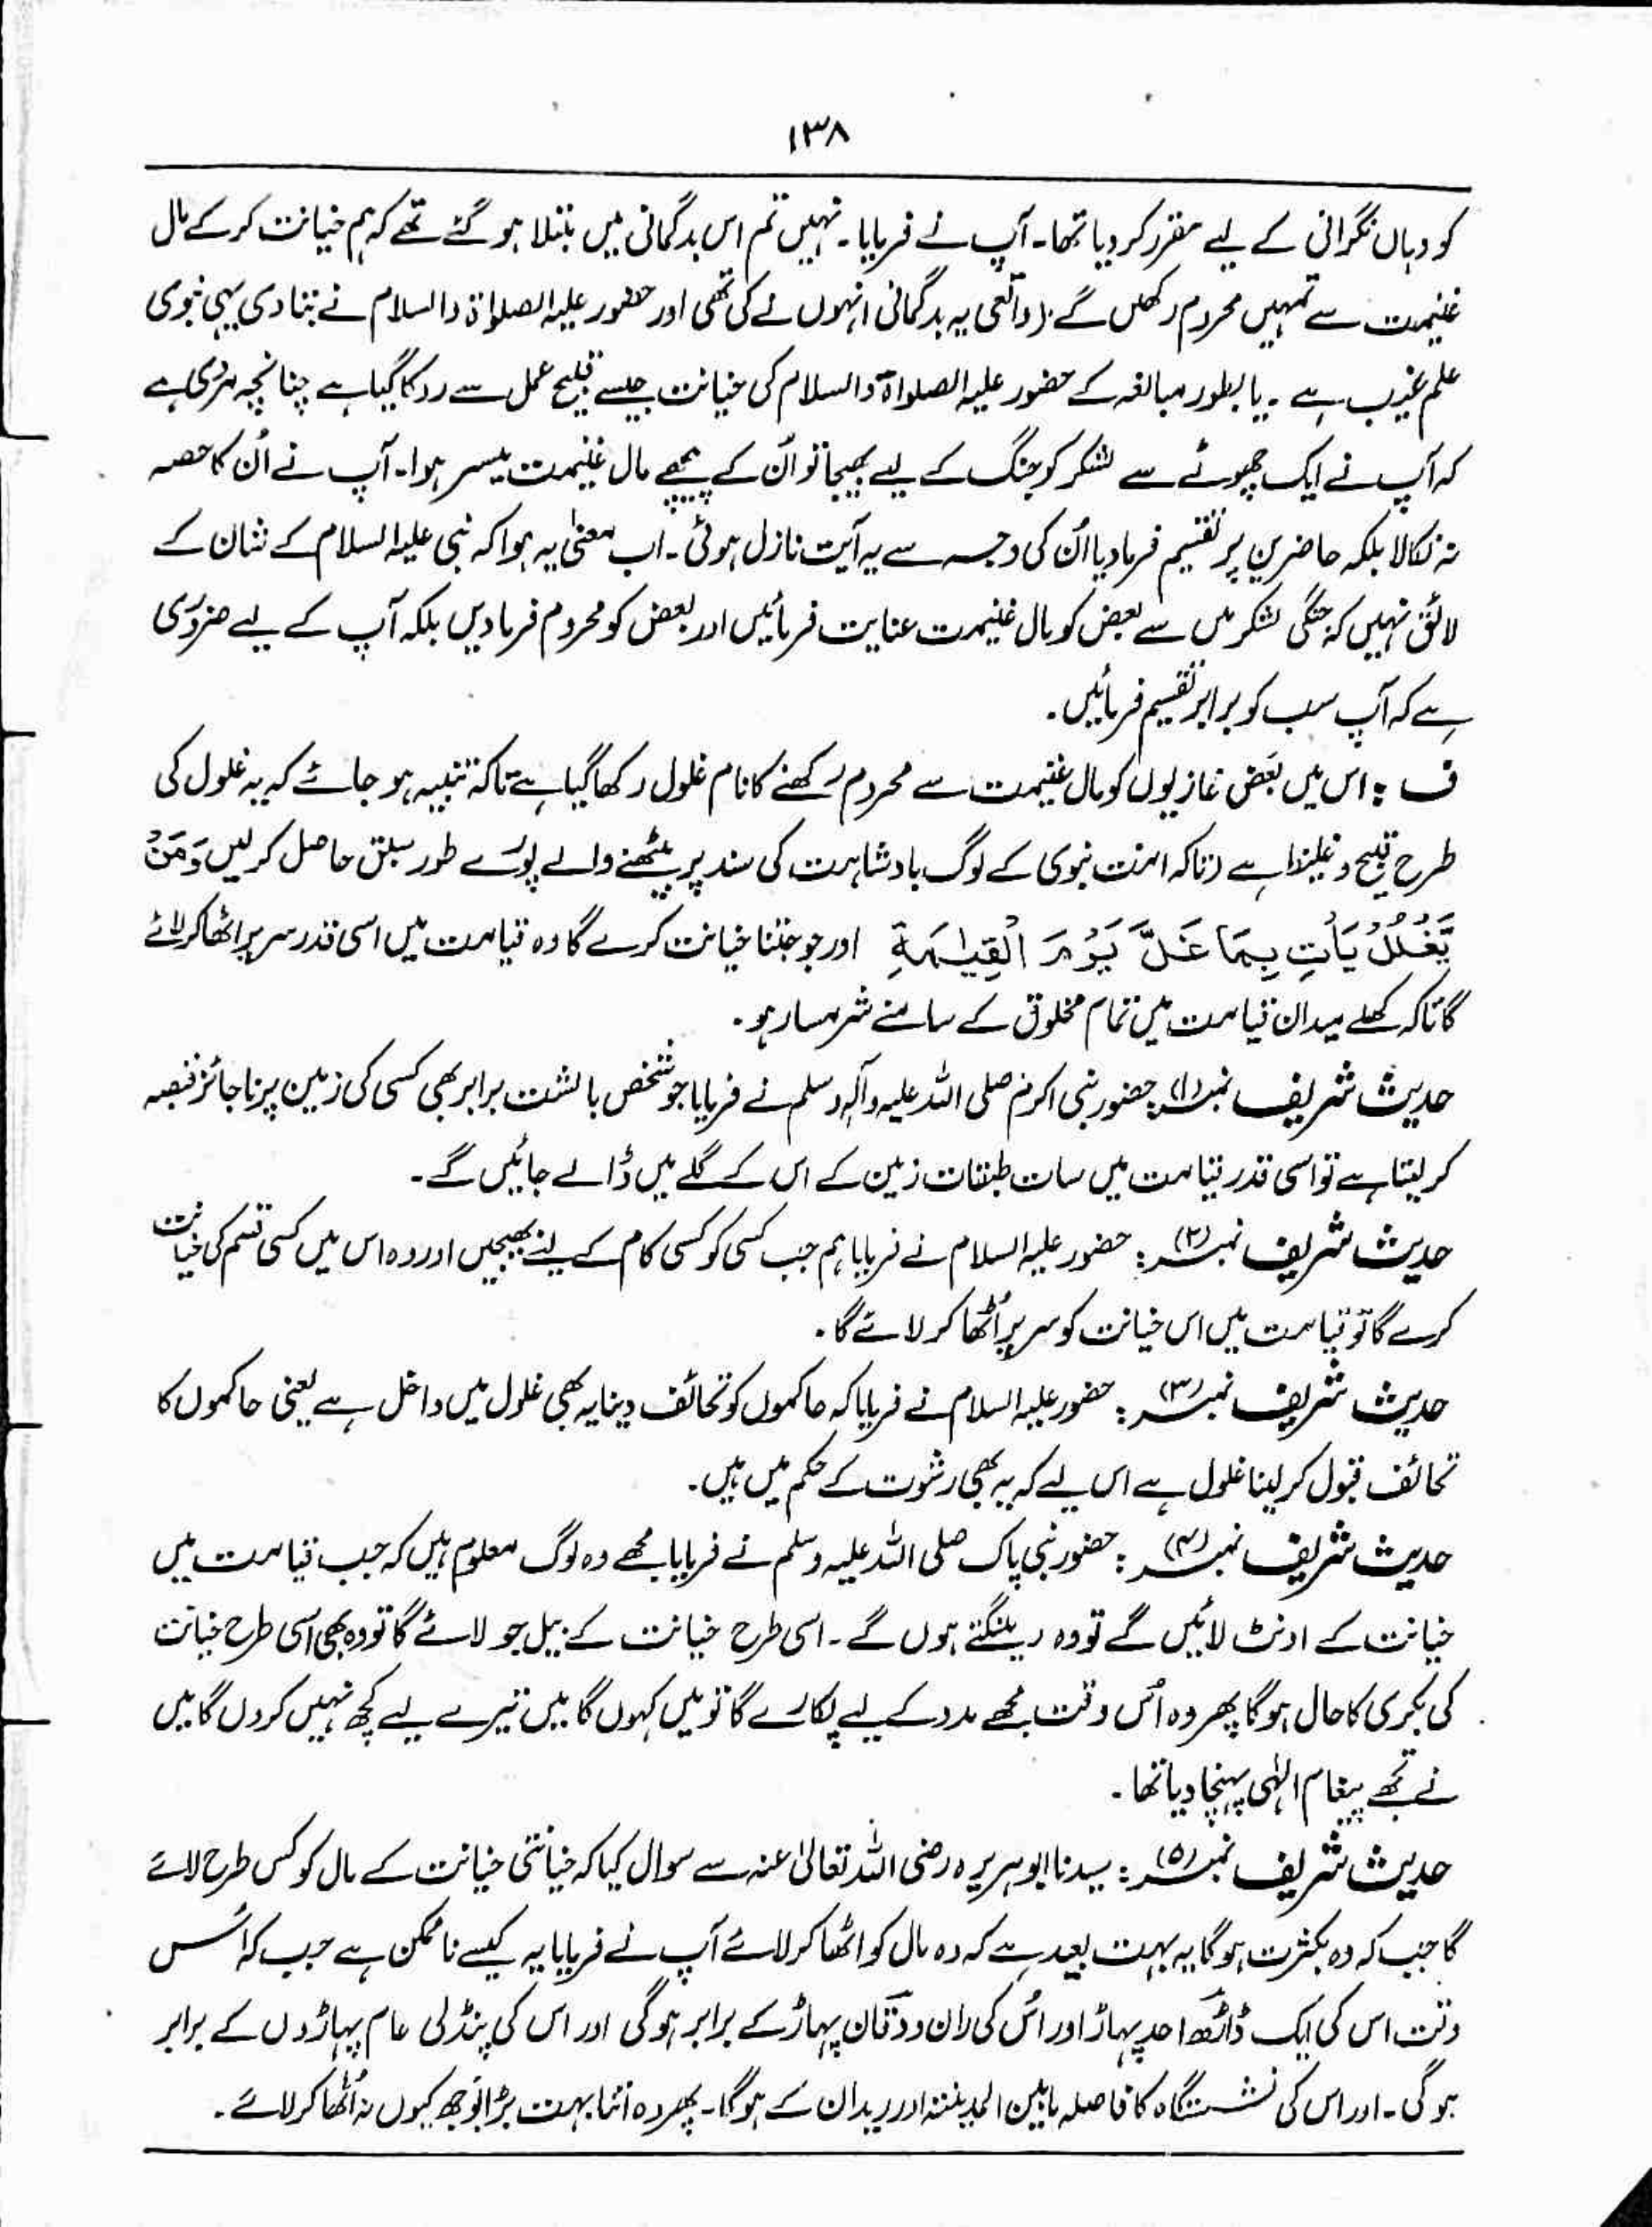 ۱۳۸
کو وہاں نگرانی کے لیے مقرر کر دیا تھا۔ آپ نے فرمایا۔ نہیں تم اس بدگمانی میں مبتلا ہو گئے تھے کہ ہم خیانت کر کے مال
غنیمت سے تمہیں محروم رکھیں گے (واقعی یہ بدگمانی انہوں نے کی تھی اور حضور علیہ الصلواۃ والسلام نے بتا دی یہی نبوی
علم غیب ہے ۔ یا بطور مبالغہ کے حضور علیہ الصلواۃ والسلام کی خیانت جیسے قبیح عمل سے روکا گیا ہے چنانچہ مروی ہے
کہ آپ نے ایک چھوٹے سے لشکر کو جنگ کے لیے بھیجا تو اُن کے پیچھے مال غنیمت میسر ہوا۔ آپ نے اُن کا حصہ
نہ نکالا بلکہ حاضرین پر تقسیم فرما دیا اُن کی وجہ سے یہ آیت نازل ہوئی ۔ اب معنیٰ یہ ہوا کہ نبی علیہ السلام کے شان کے
لائق نہیں کہ جنگی لشکر میں سے بعض کو مال غنیمت عنایت فرمائیں اور بعض کو محروم فرما دیں بلکہ آپ کے لیے ضروری
ہے کہ آپ سب کو برابر تقسیم فرمائیں ۔
ف : اس میں بعض غازیوں کو مال غنیمت سے محروم رکھنے کا نام غلول رکھا گیا ہے تاکہ تنبیہ ہو جائے کہ یہ غلول کی
طرح قبیح و غلیظ ہے (تاکہ امت نبوی کے لوگ بادشاہت کی مسند پر بیٹھنے والے پورے طور سبق حاصل کر لیں وَمَنْ
یَّغْلُلْ یَاْتِ بِمَا غَلَّ یَوْمَ الْقِیٰمَۃِ اور جو جتنا خیانت کرے گا وہ قیامت میں اسی قدر سر پر اٹھا کر لائے
گا تاکہ کھلے میدان قیامت میں تمام مخلوق کے سامنے شرمسار ہو ۔
حدیث شریف نمبر (۱) : حضور نبی اکرم صلی اللہ علیہ وآلہ وسلم نے فرمایا جو شخص بالشت برابر بھی کسی کی زمین پر ناجائز قبضہ
کر لیتا ہے تو اسی قدر قیامت میں سات طبقات زمین کے اس کے گلے میں ڈالے جائیں گے ۔
حدیث شریف نمبر (۲) : حضور علیہ السلام نے فرمایا ہم جب کسی کو کسی کام کے لئے بھیجیں اور وہ اس میں کسی قسم کی خیانت
کرے گا تو قیامت میں اس خیانت کو سر پر اُٹھا کر لائے گا ۔
حدیث شریف نمبر (۳) : حضور علیہ السلام نے فرمایا کہ حاکموں کو تحائف دینا یہ بھی غلول میں داخل ہے یعنی حاکموں کا
تحائف قبول کر لینا غلول ہے اس لیے کہ یہ بھی رشوت کے حکم میں ہیں ۔
حدیث شریف نمبر (۴) : حضور نبی پاک صلی اللہ علیہ وسلم نے فرمایا مجھے وہ لوگ معلوم ہیں کہ جب قیامت میں
خیانت کے اونٹ لائیں گے تو وہ رینگتے ہوں گے ۔ اسی طرح خیانت کے بیل جو لائے گا تو وہ بھی اسی طرح خیانت
کی بکری کا حال ہو گا پھر وہ اُس وقت مجھے مدد کے لیے پکارے گا تو میں کہوں گا میں تیرے لیے کچھ نہیں کروں گا میں
نے تجھے پیغام الٰہی پہنچا دیا تھا ۔
حدیث شریف نمبر (۵) : سیدنا ابو ہریرہ رضی اللہ تعالیٰ عنہ سے سوال کیا کہ خیانتی خیانت کے مال کو کس طرح لائے
گا جب کہ وہ بکثرت ہو گا یہ بہت بعید ہے کہ وہ مال کو اٹھا کر لائے آپ نے فرمایا یہ کیسے ناممکن ہے جب کہ اُس
وقت اس کی ایک ڈاڑھ احد پہاڑ اور اُس کی ران ودقان پہاڑ کے برابر ہو گی اور اس کی پنڈلی عام پہاڑوں کے برابر
ہو گی ۔ اور اس کی نشستگاہ کا فاصلہ مابین المدینتہ اور ریدان کے ہو گا ۔ پھر وہ اتنا بہت بڑا بوجھ کیوں نہ اُٹھا کر لائے ۔